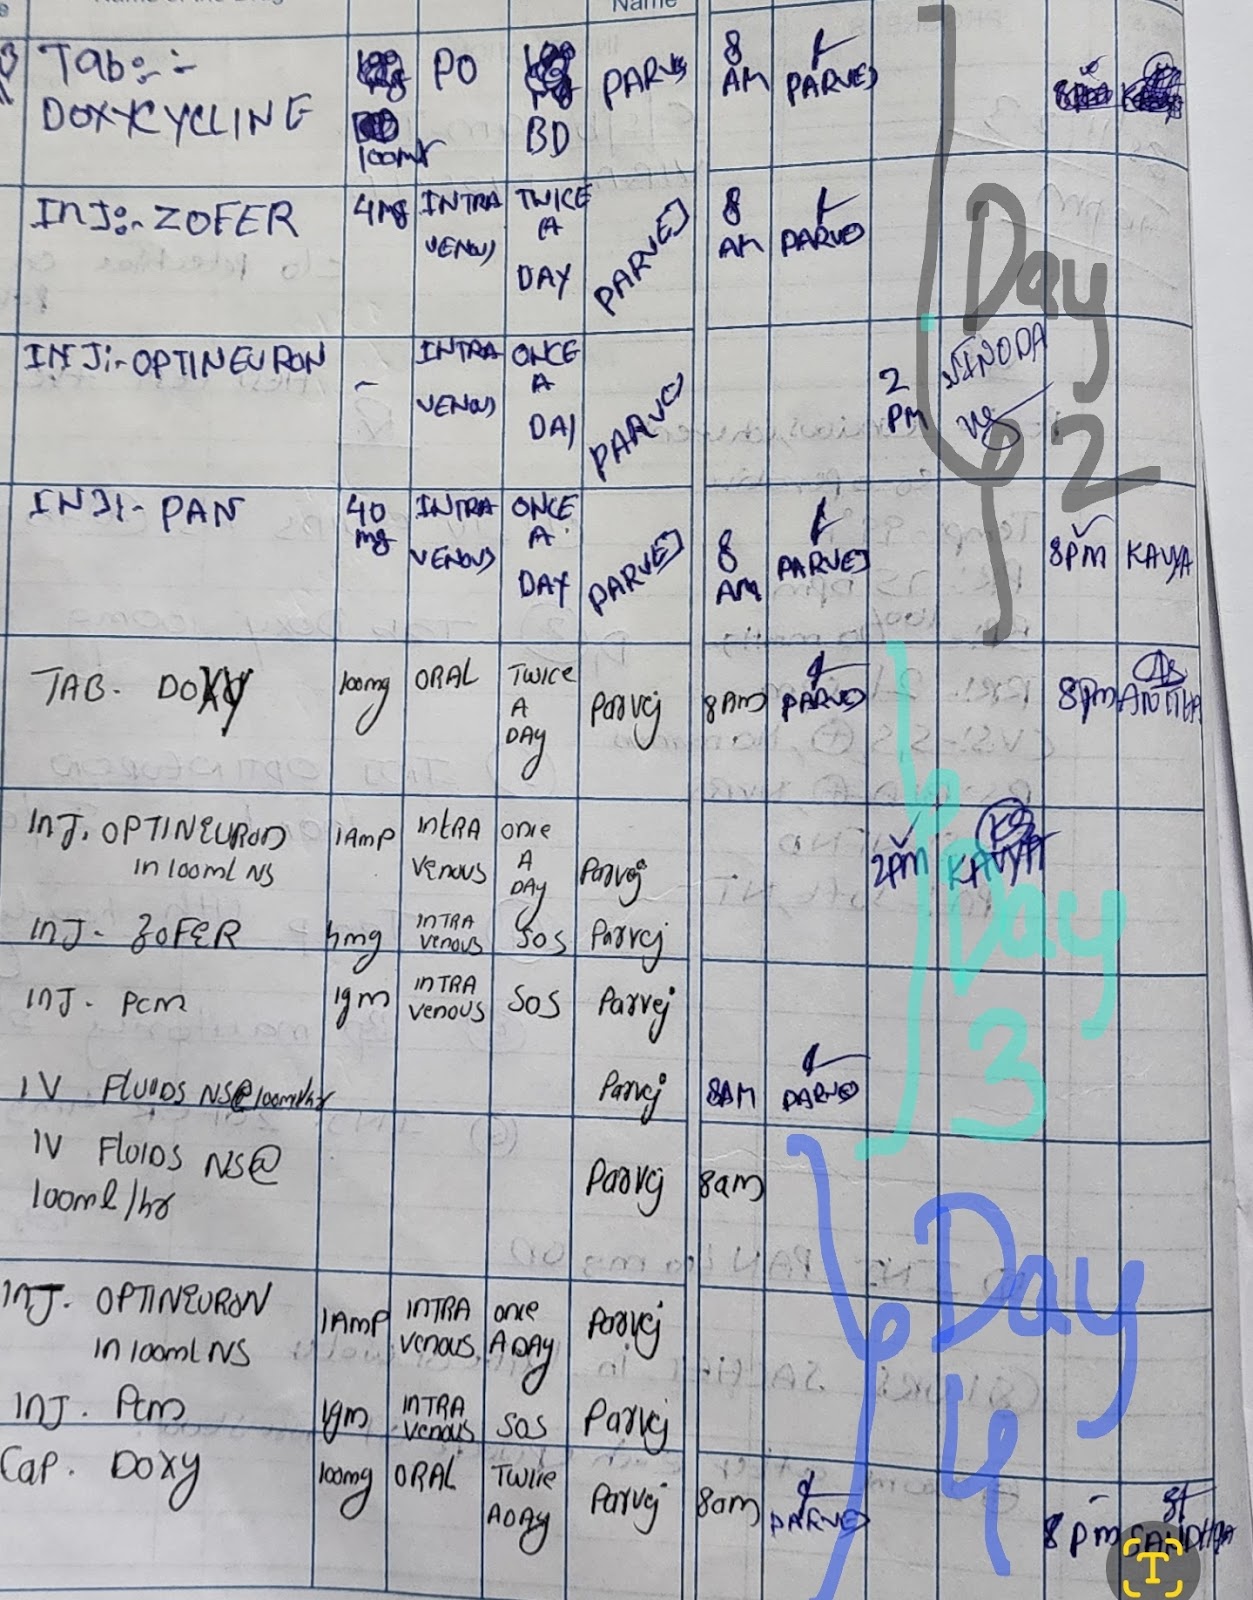 Name
Tab:- PO PARVEJ 8 AM PARVEJ
DOXYCYCLINE 100mg BD
INJ:- ZOFER 4mg INTRA VENOUS TWICE A DAY PARVEJ 8 AM PARVEJ
INJ:- OPTINEURON - INTRA VENOUS ONCE A DAY PARVEJ 2 PM
INJ:- PAN 40 mg INTRA VENOUS ONCE A DAY PARVEJ 8 AM PARVEJ 8PM KAVYA
Day 2
TAB. DOXY 100mg ORAL TWICE A DAY Parvej 8AM PARVEJ 8pm ANITHA
INJ. OPTINEURON 1AMP INTRA VENOUS once A DAY Parvej 2PM KAVYA
in 100ml NS
INJ- ZOFER 4mg INTRA VENOUS SOS Parvej
INJ- PCM 1gm INTRA VENOUS SOS Parvej
IV FLUIDS NS@100ml/hr Parvej 8AM PARVEJ
Day 3
IV FLUIDS NS@ Parvej 8am
100ml/hr
INJ. OPTINEURON 1AMP INTRA VENOUS once A DAY Parvej
in 100ml NS
INJ. PCM 1gm INTRA VENOUS SOS Parvej
CAP. DOXY 100mg ORAL TWICE A DAY Parvej 8am PARVEJ 8pm SANDHYA
Day 4